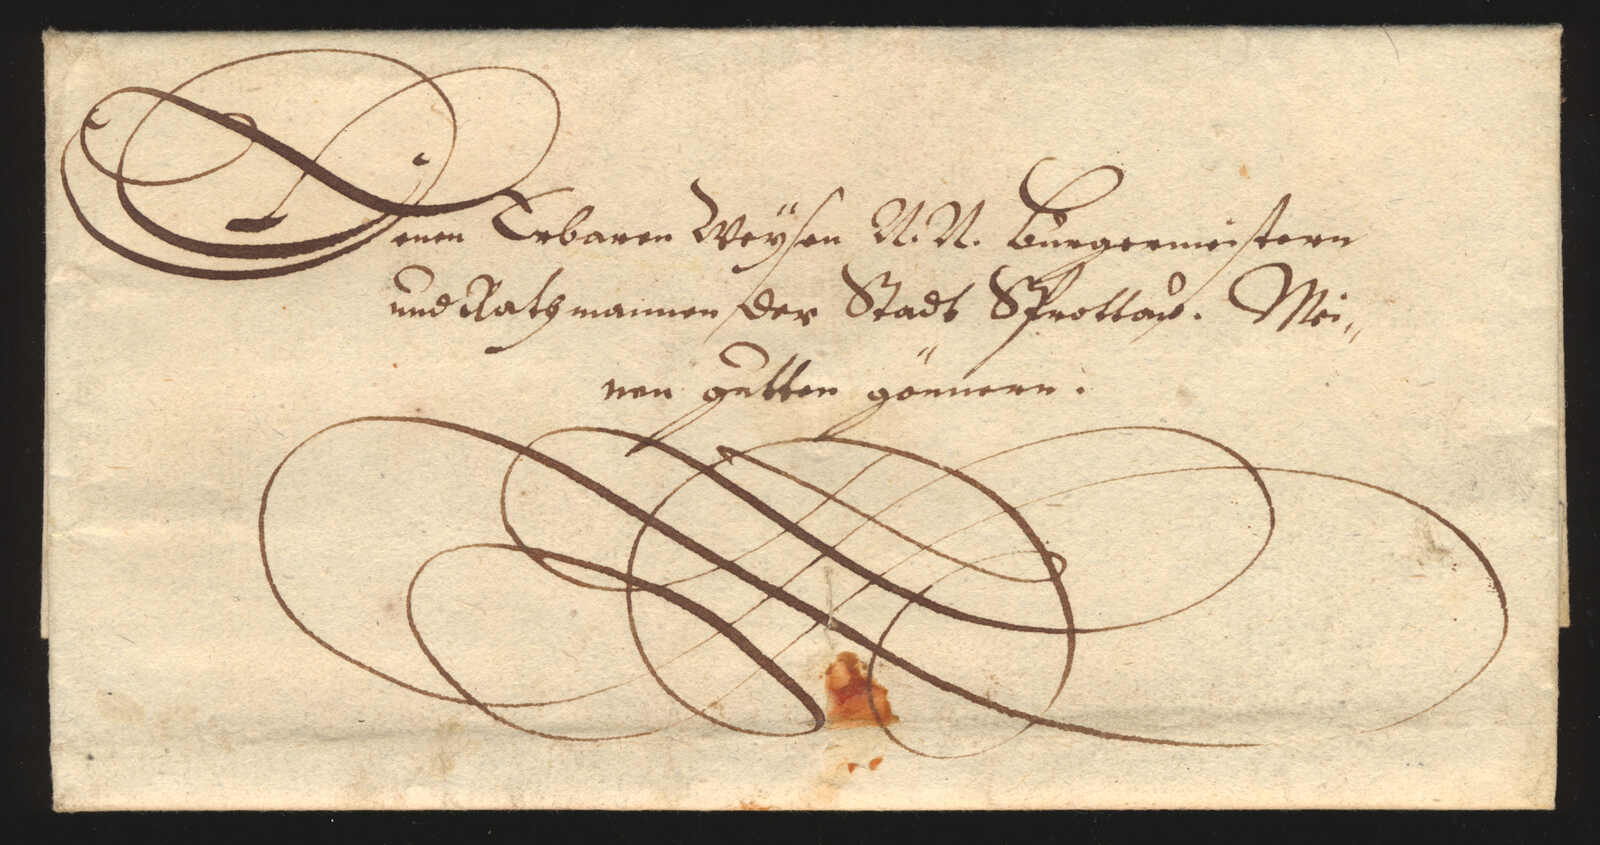 Denen Erbaren Weÿsen N. N. Bürgermeistern
und Rathmannen der Stadt Sprottaw. Mei„
nen gutten gönnern.